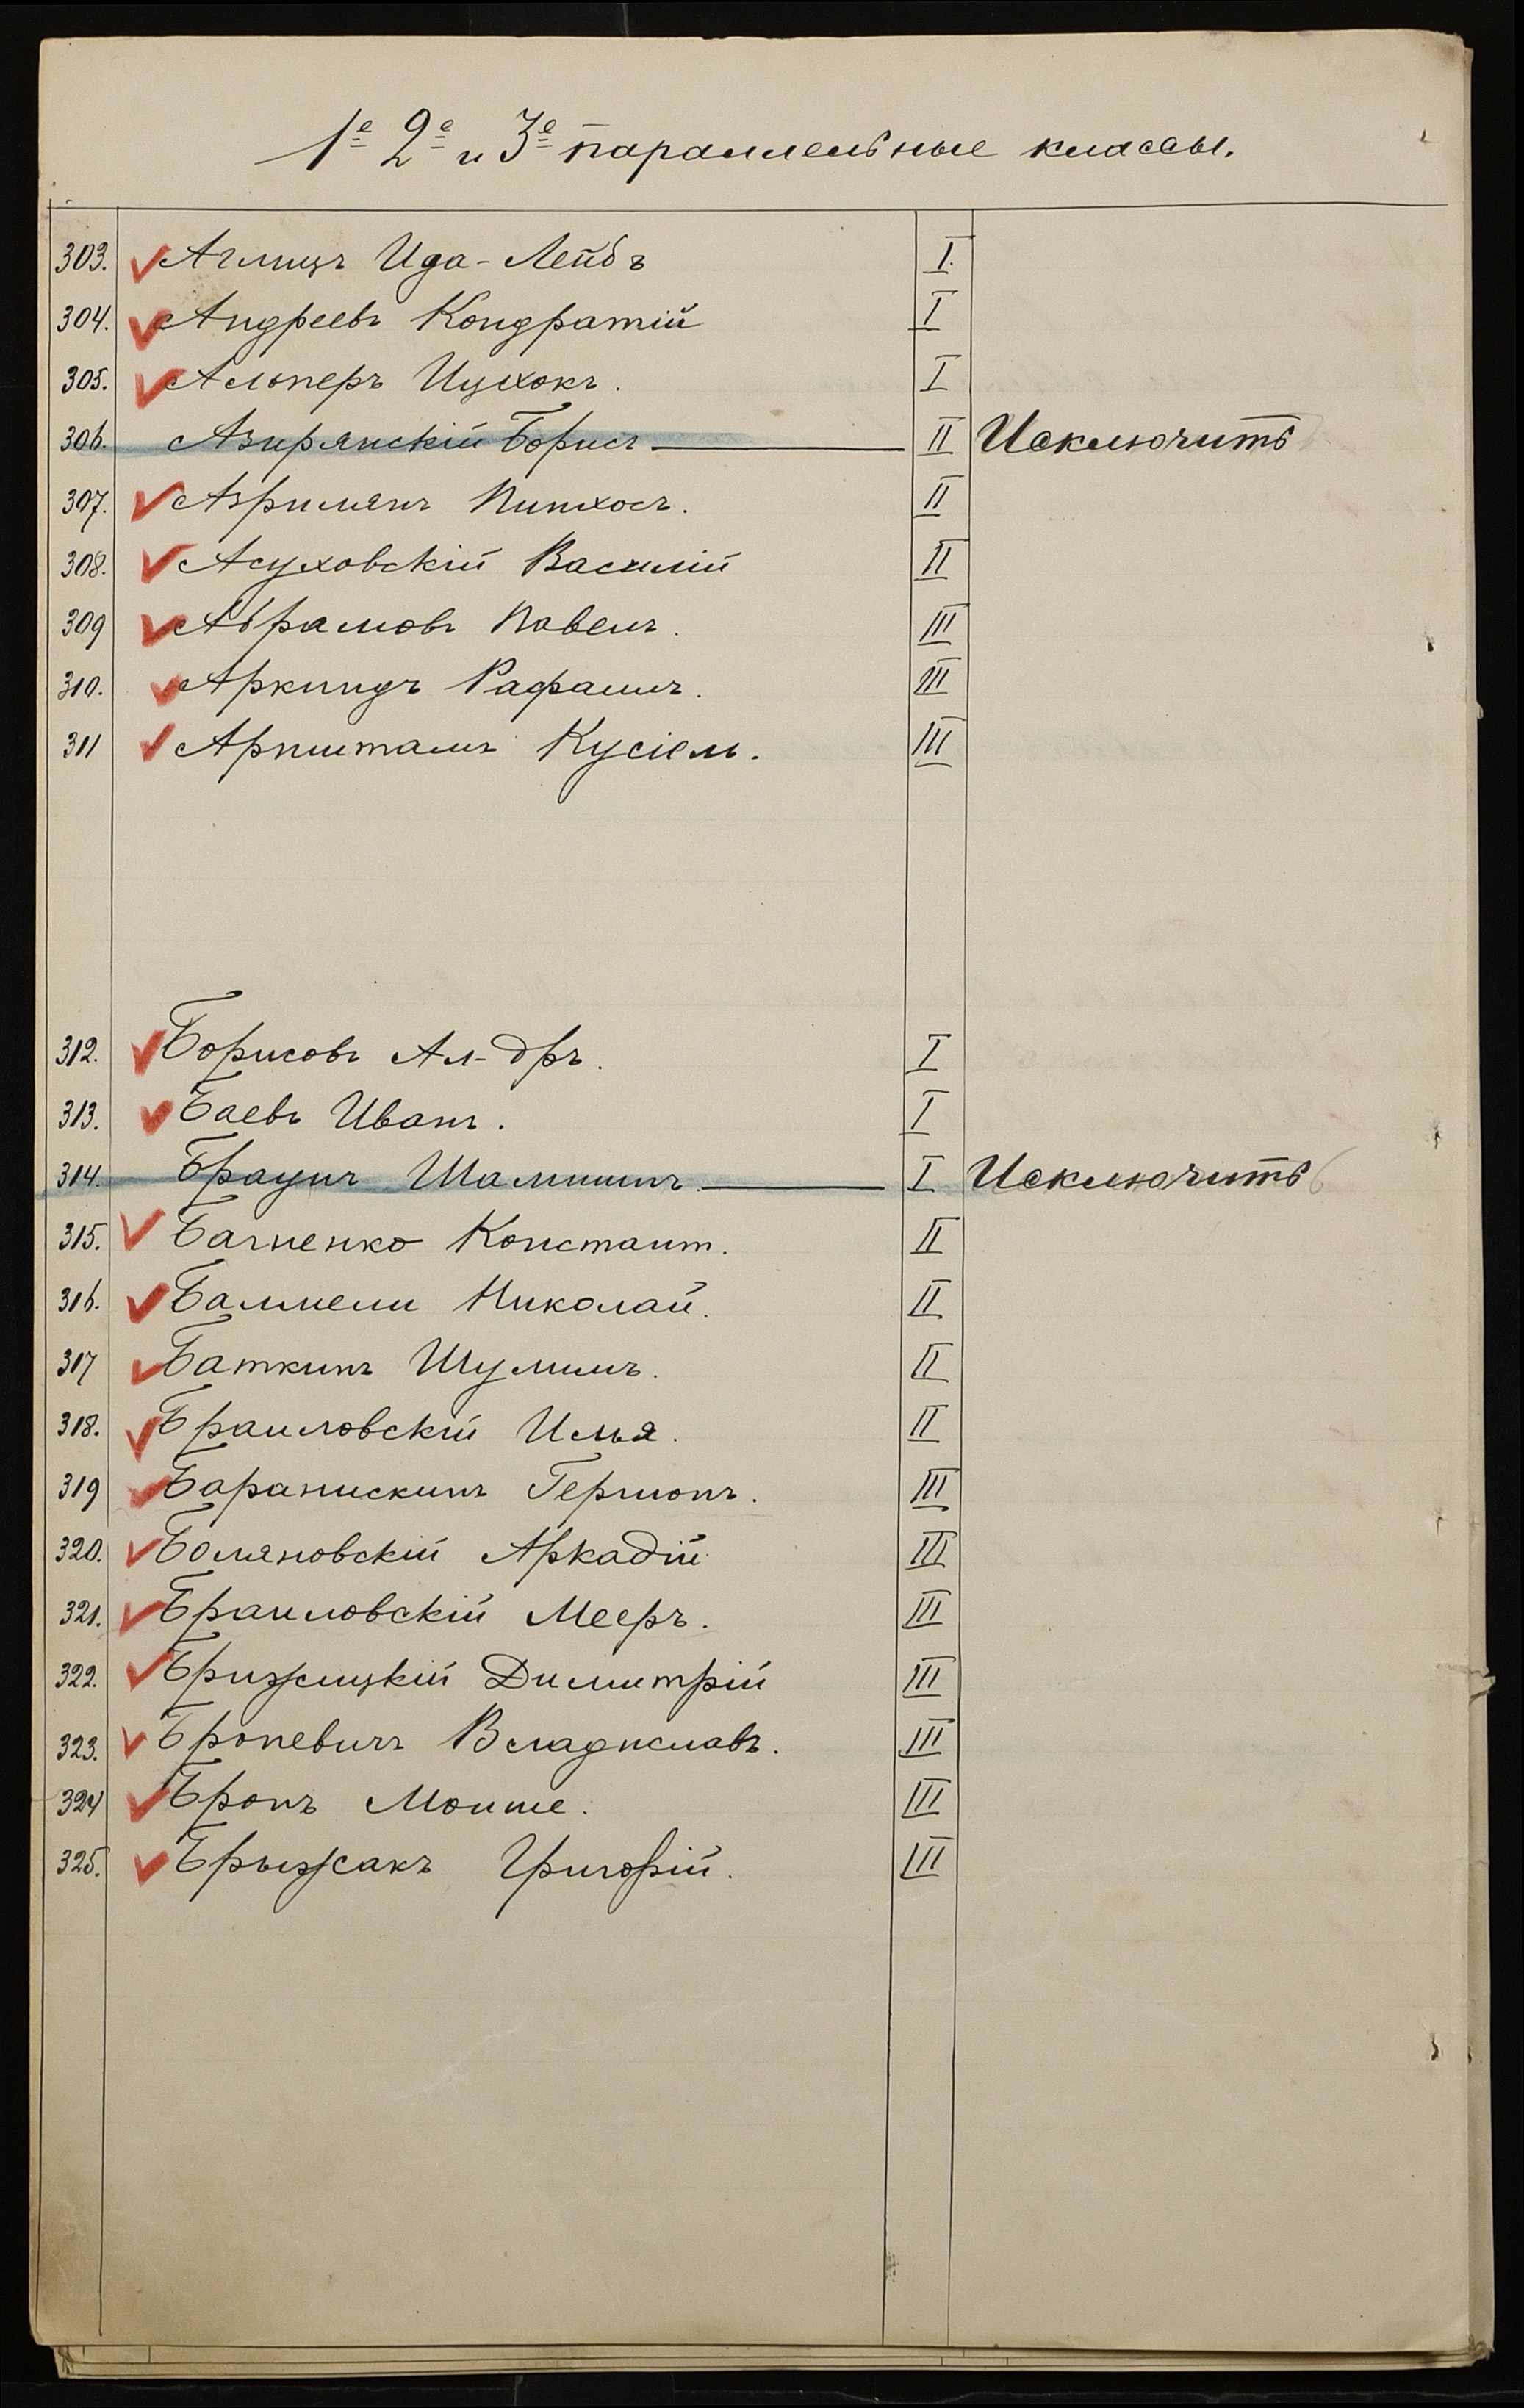 1е 2е и 3е параллельные классы.
303. Аглицъ Ида-Лейбъ I.
304. Андреевъ Кондратій I
305. Альперъ Ицхокъ. I
306. Азирянскій Борисъ II Исключить
307. Азримянъ Пинхосъ. II
308. Асуховскій Василій II
309 Абрамовъ Павелъ. III
310. Аркиндъ Рафаилъ. III
311 Арнштамъ Кусіель. III
312. Борисовъ Ал-дръ. I
313. Баевъ Иванъ. I
314. Браунъ I Исключить
315. Багненко Констант. II
316. Николай. II
317 Баткинъ Шулимъ. II
318. Браиловскій Илья. II
319 III
320. Боляновскій Аркадій III
321. Браиловскій Мееръ. III
322. Брижицкій Димитрій III
323.Броневичъ Владиславъ. III
324 Бронъ Моише. III
325. Брызжакъ Григорій. III